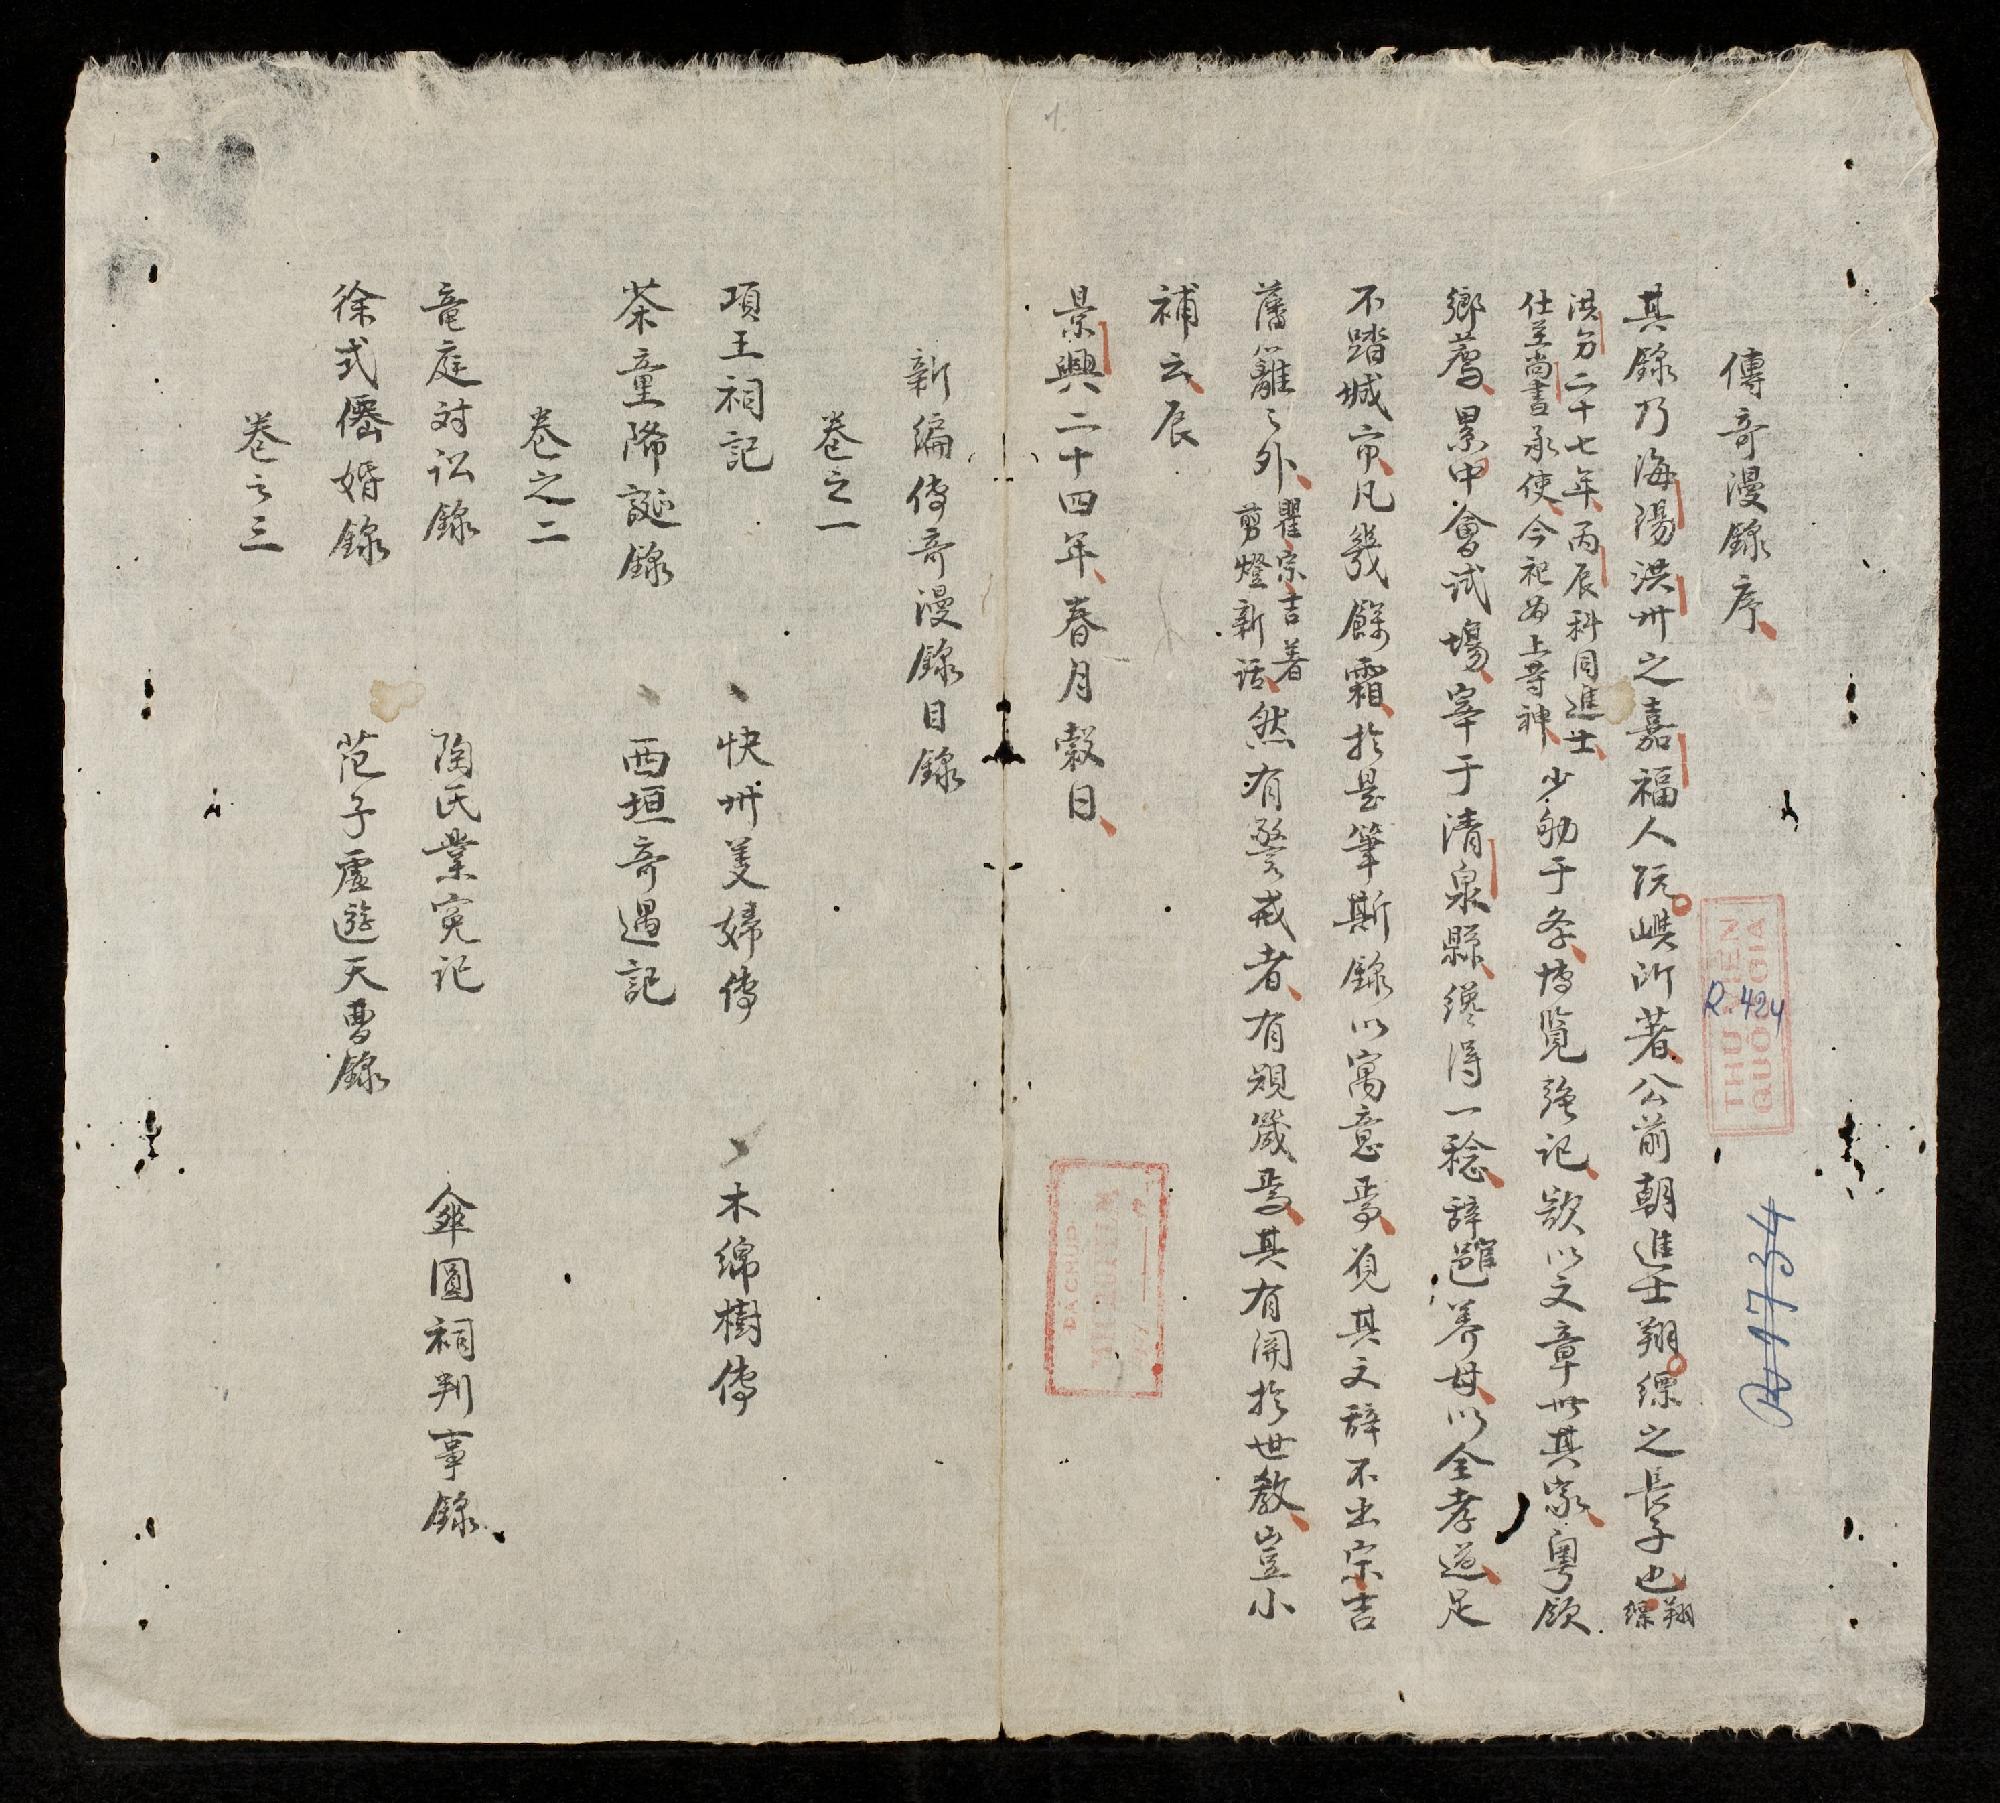 傳奇漫錄序
其錄乃海陽洪州之嘉福人阮嶼所著公前朝進士翔縹之長子也翔縹
洪𫝆二十七年丙辰科同進士
仕至尚書承使今祀為上等神
少劬于斈博覽強記欲以文章世其家粤領
鄉荐累中會试塲宰于清泉縣纔得一稔辞邑養母以全孝道足
不踏城市凡幾餘霜於是筆斯錄以寓意焉观其文辞不出宗吉
藩籬之外
瞿宗吉著
剪燈新话
然有警戒者有規箴焉其有関於世教豈小
補云辰
景興二十四年春月榖日
新編传奇漫錄目錄
卷之一
項王祠記 快州美婦传 木綿樹传
茶童降誕錄 西垣奇遇記
卷之二
竜庭对訟錄 陶氏業冤记 傘圓祠判事錄
徐式僊婚錄 范子虛遊天曹錄
卷之三
THƯ VIỆN
QUỐC GIA
R.424
R 1734
ĐÃ CHỤP
MICROFILM
1.